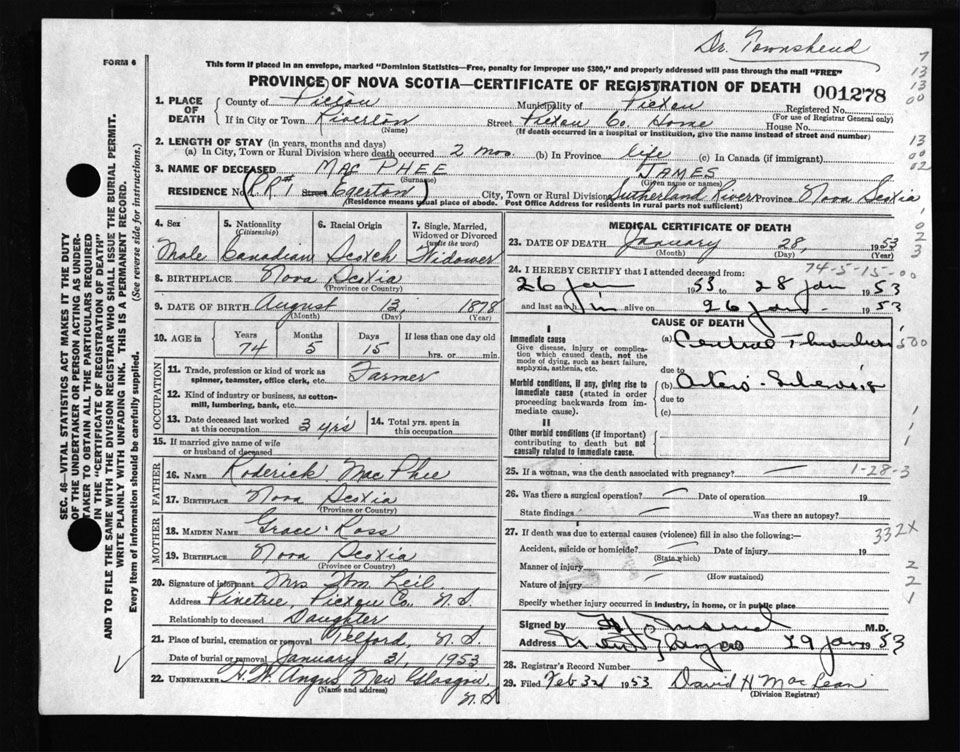 Dr. Townshend
FORM 6
This form if placed in an envelope, marked "Dominion Statistics—Free, penalty for improper use $300," and properly addressed will pass through the mail "FREE"
PROVINCE OF NOVA SCOTIA—CERTIFICATE OF REGISTRATION OF DEATH 001278
1. PLACE OF DEATH
County of Pictou Municipality of Pictou Registered No.
(For use of Registrar General only)
If in City or Town Riverton Street Pictou Co. Home House No.
(Name) (If death occurred in a hospital or institution, give the name instead of street and number)
2. LENGTH OF STAY (in years, months and days)
(a) In City, Town or Rural Division where death occurred 2 mos (b) In Province life (c) In Canada (if immigrant)
3. NAME OF DECEASED MAC PHEE JAMES
(Surname) (Given name or names)
RESIDENCE No. (RR#1 Street Egerton) City, Town or Rural Division Sutherland River Province Nova Scotia
(Residence means usual place of abode. Post Office Address for residents in rural parts not sufficient)
4. Sex 5. Nationality (Citizenship) 6. Racial Origin 7. Single, Married, Widowed or Divorced (write the word)
Male Canadian Scotch Widower
8. BIRTHPLACE Nova Scotia
(Province or Country)
9. DATE OF BIRTH August 13, 1878
(Month) (Day) (Year)
10. AGE in Years Months Days If less than one day
74 5 15 hrs. or min.
OCCUPATION
11. Trade, profession or kind of work as spinner, teamster, office clerk, etc. Farmer
12. Kind of industry or business, as cotton-mill, lumbering, bank, etc.
13. Date deceased last worked at this occupation 3 yrs 14. Total yrs. spent in this occupation
15. If married give name of wife or husband of deceased
FATHER
16. NAME Roderick MacPhee
17. BIRTHPLACE Nova Scotia
(Province or Country)
MOTHER
18. MAIDEN NAME Grace Ross
19. BIRTHPLACE Nova Scotia
(Province or Country)
20. Signature of informant Mrs Wm. Leil
Address Pinetree, Pictou Co., N.S.
Relationship to deceased Daughter
21. Place of burial, cremation or removal Telford, N.S.
Date of burial or removal January 31, 1953
22. UNDERTAKER H.W. Angus, New Glasgow N.S
(Name and address)
MEDICAL CERTIFICATE OF DEATH
23. DATE OF DEATH January 28, 1953
(Month) (Day) (Year)
74-5-15-00
24. I HEREBY CERTIFY that I attended deceased from:
26 Jan 1953 to 28 Jan 1953
and last saw him alive on 26 Jan. 1953
CAUSE OF DEATH
I
Immediate cause
Give disease, injury or complication which caused death, not the mode of dying, such as heart failure, asphyxia, asthenia, etc.
(a) Cerebral Thrombosis
due to
Morbid conditions, if any, giving rise to immediate cause (stated in order proceeding backwards from immediate cause).
(b) Arterio-Sclerosis
due to
(c)
II
Other morbid conditions (if important) contributing to death but not causally related to immediate cause.
25. If a woman, was the death associated with pregnancy? 1-28-3
26. Was there a surgical operation? Date of operation 19
State findings Was there an autopsy?
27. If death was due to external causes (violence) fill in also the following:— 332X
Accident, suicide or homicide? Date of injury 19
(State which)
Manner of injury
(How sustained)
Nature of injury
Specify whether injury occurred in industry, in home, or in public place
Signed by M.D.
Address New Glasgow 29 Jan 1953
28. Registrar's Record Number
29. Filed Feb 3rd 1953 David H MacLean
(Division Registrar)
SEC. 46—VITAL STATISTICS ACT MAKES IT THE DUTY OF THE UNDERTAKER OR PERSON ACTING AS UNDERTAKER TO OBTAIN ALL THE PARTICULARS REQUIRED IN THE "CERTIFICATE OF REGISTRATION OF DEATH" AND TO FILE THE SAME WITH THE DIVISION REGISTRAR WHO SHALL ISSUE THE BURIAL PERMIT.
WRITE PLAINLY WITH UNFADING INK. THIS IS A PERMANENT RECORD.
Every item of information should be carefully supplied. (See reverse side for instructions.)
7
13
13
00
13
00
02